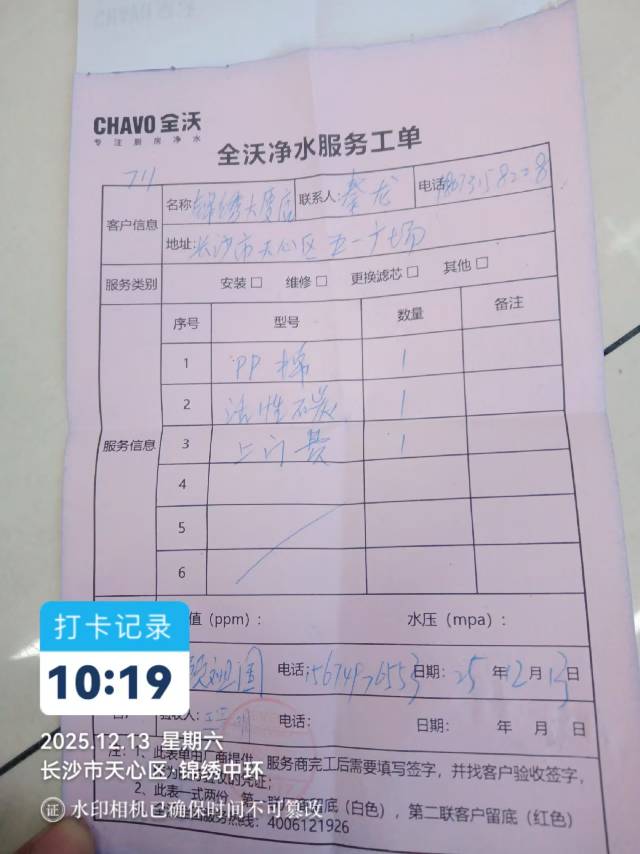 CHAVO 全沃
专注厨房净水
全沃净水服务工单
客户信息
名称: 锦绣大厦店 联系人: 秦龙 电话:
地址: 长沙市天心区五一广场
服务类别 安装□ 维修□ 更换滤芯□ 其他□
服务信息
序号 型号 数量 备注
1 PP棉 1
2 活性碳 1
3 上门费 1
4
5
6
值（ppm）: 水压（mpa）:
电话: 15674976553 日期: 25 年 12 月 13 日
验收人: 电话: 日期: 年 月 日
注: 1、此表单由厂商提供，服务商完工后需要填写签字，并找客户验收签字，
的凭证;
2、此表一式两份，第一联 留底（白色），第二联客户留底（红色）
服务热线: 4006121926
打卡记录
10:19
2025.12.13 星期六
长沙市天心区·锦绣中环
证 水印相机已确保时间不可篡改